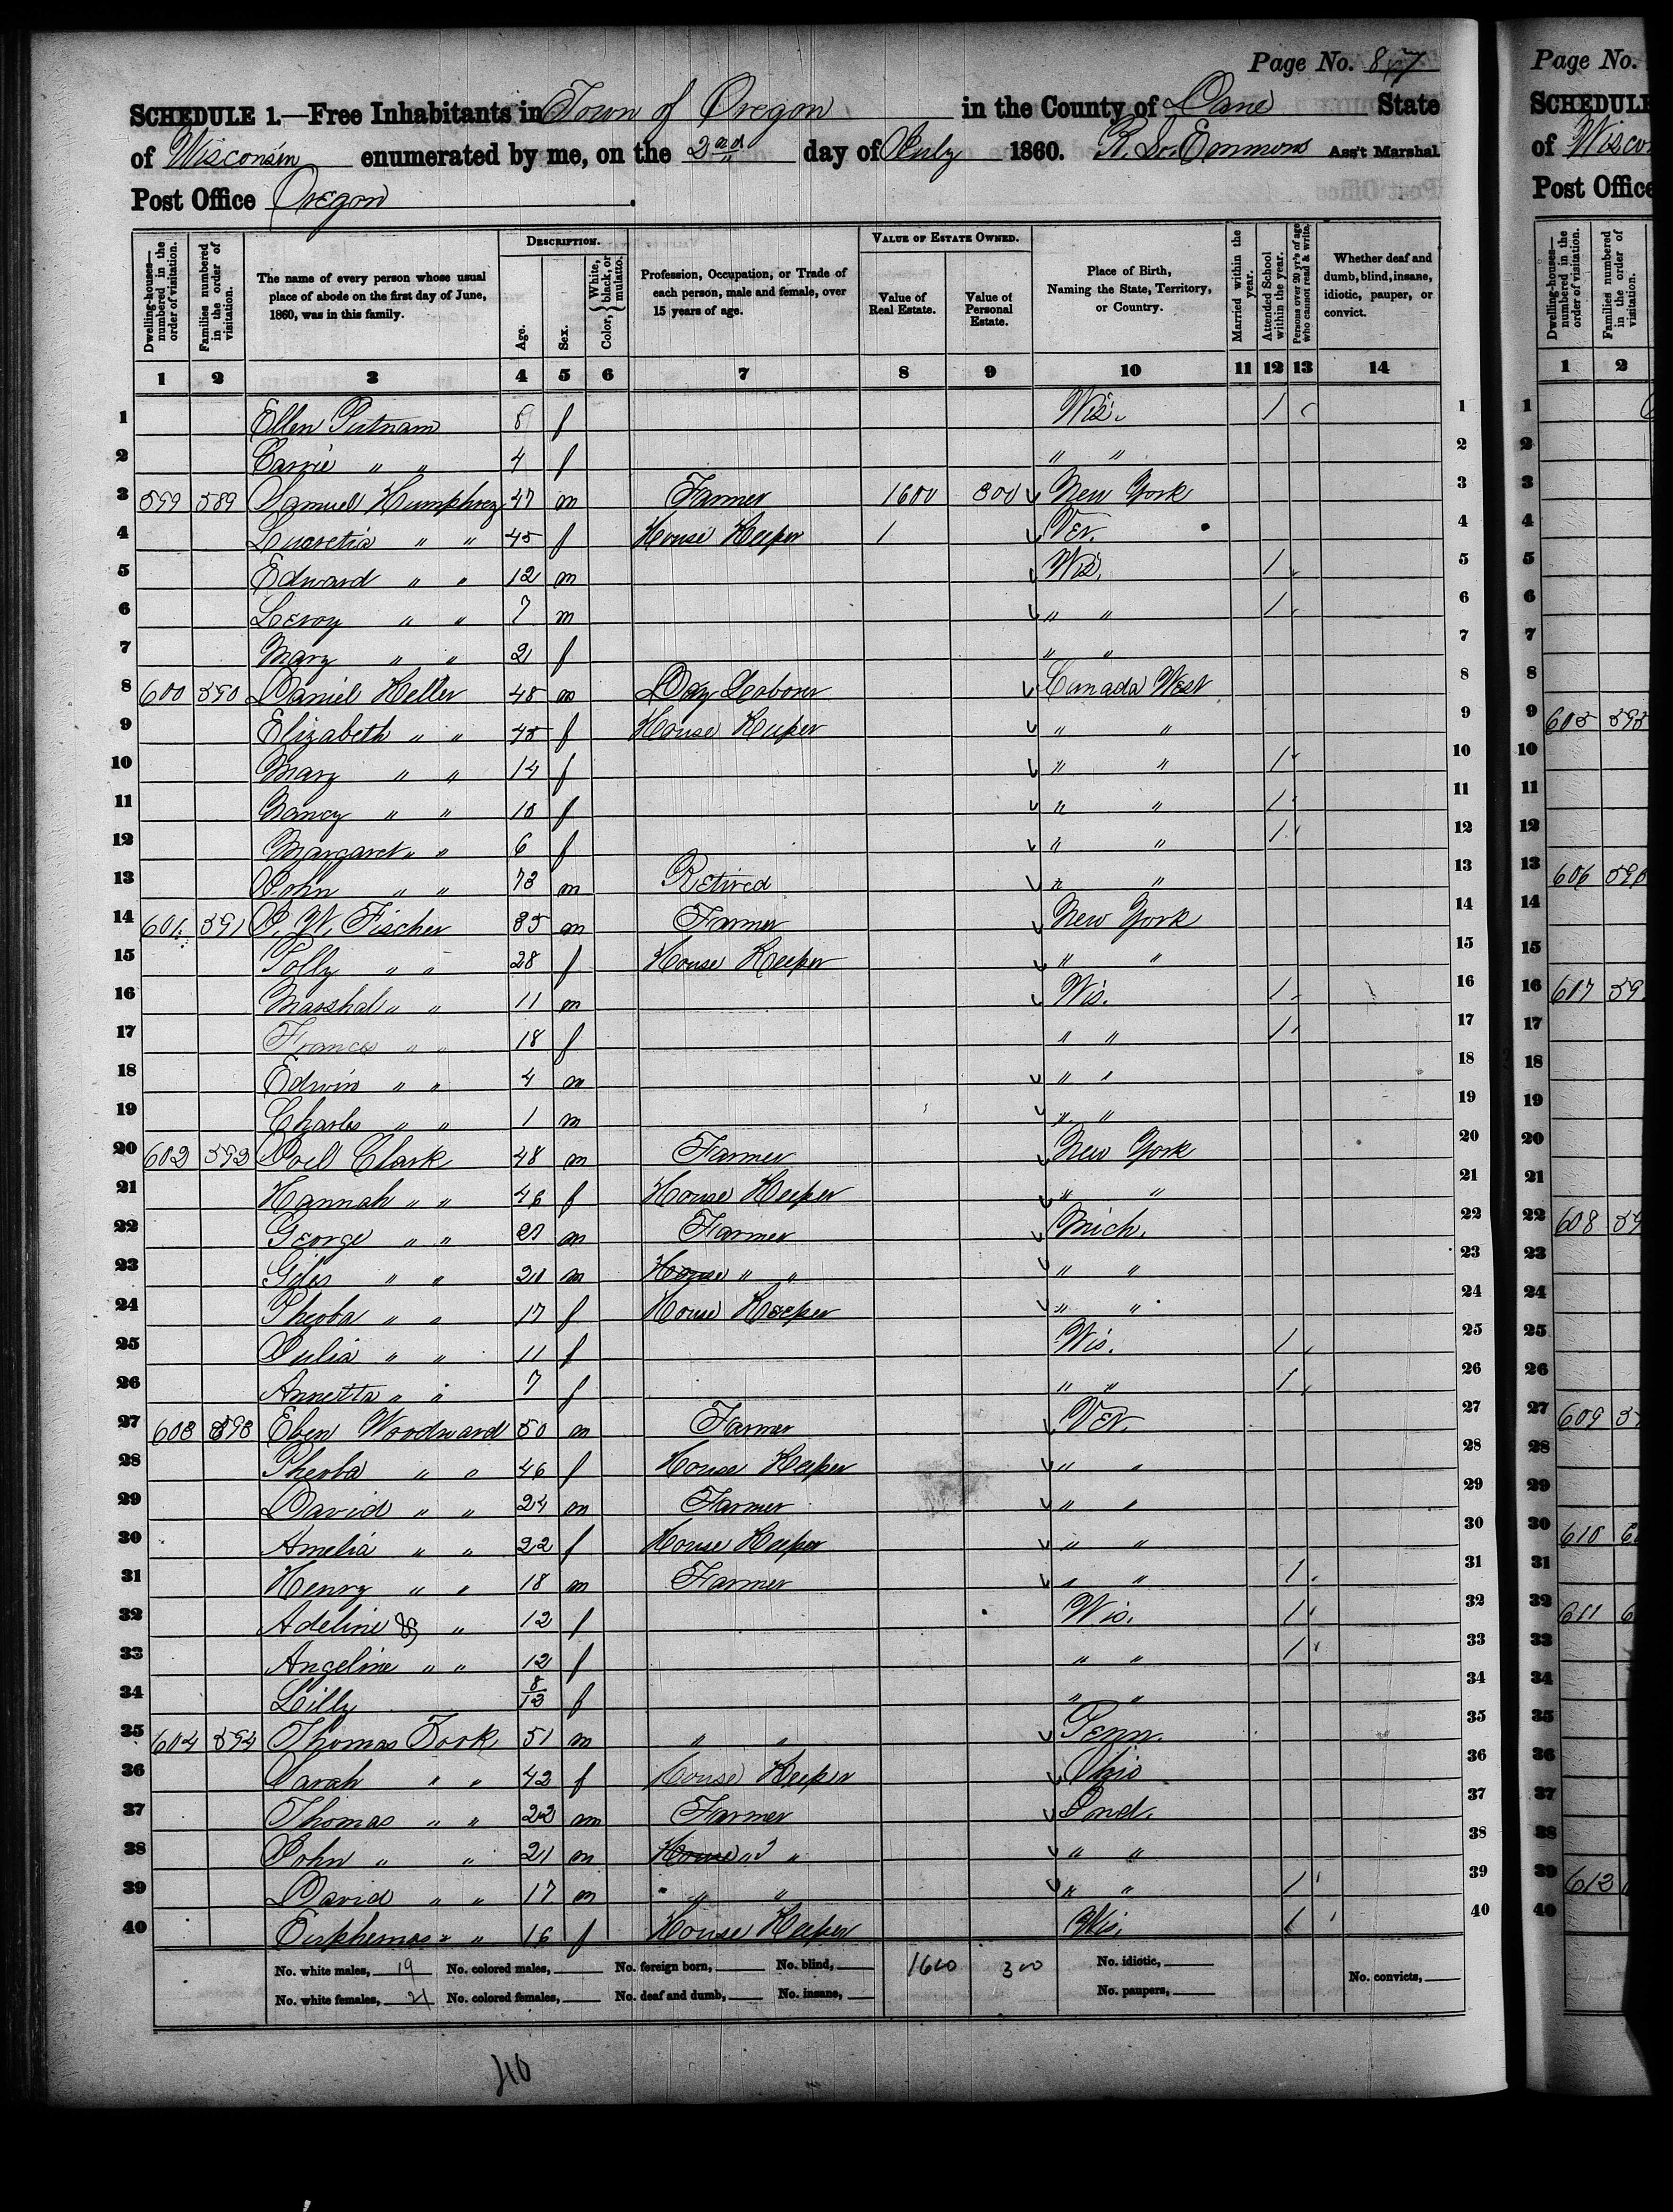 Page No. 847
SCHEDULE 1.—Free Inhabitants in Town of Oregon in the County of Dane State
of Wisconsin enumerated by me, on the 2nd day of July 1860. Emmons Ass't Marshal.
Post Office Oregon
Dwelling-houses—numbered in the order of visitation. Families numbered in the order of visitation. The name of every person whose usual place of abode on the first day of June, 1860, was in this family. DESCRIPTION. Age. Sex. Color, {White, black, or mulatto. Profession, Occupation, or Trade of each person, male and female, over 15 years of age. VALUE OF ESTATE OWNED. Value of Real Estate. Value of Personal Estate. Place of Birth, Naming the State, Territory, or Country. Married within the year. Attended School within the year. Persons over 20 yr's of age who cannot read & write. Whether deaf and dumb, blind, insane, idiotic, pauper, or convict.
1 2 3 4 5 6 7 8 9 10 11 12 13 14
1 Ellen Putnam 8 f Wis. / 1
2 Carrie " " 4 f " " 2
3 599 589 Samuel Humphrey 47 m Farmer 1600 300 New York 3
4 Lucretia " " 45 f House Keeper 1 Ver. 4
5 Edward " " 12 m Wis. / 5
6 Leroy " " 7 m " " / 6
7 Mary " " 2 f " " 7
8 600 590 Daniel Heller 48 m Day Labour Canada West 8
9 Elizabeth " " 45 f House Keeper " " 9
10 Mary " " 14 f " " / 10
11 Nancy " " 10 f " " / 11
12 Margaret " " 6 f " " / 12
13 John " " 73 m Retired " " 13
14 601 591 W. Fischer 35 m Farmer New York 14
15 Polly " " 28 f House Keeper " " 15
16 Marshal " " 11 m Wis. / 16
17 Frances " " 18 f " " / 17
18 Edwin " " 4 m " " 18
19 Charles " " 1 m " " 19
20 602 592 Joel Clark 48 m Farmer New York 20
21 Hannah " " 46 f House Keeper " " 21
22 George " " 21 m Farmer Mich. 22
23 Giles " " 20 m House " " " " 23
24 Pheoba " " 17 f House Keeper " " 24
25 Julia " " 11 f Wis. / 25
26 Annetta " " 7 f " " / 26
27 603 593 Eben Woodward 50 m Farmer Ver. 27
28 Pheoba " " 46 f House Keeper " " 28
29 David " " 24 m Farmer " " 29
30 Amelia " " 22 f House Keeper " " 30
31 Henry " " 18 m Farmer " " / 31
32 Adeline " 12 f Wis. / 32
33 Angeline " " 12 f " " / 33
34 Lilly 8/12 f " " 34
35 604 594 Thomas Fook 51 m " " Penn. 35
36 Sarah " " 42 f House Keeper Ohio 36
37 Thomas " " 22 m Farmer Ind. 37
38 John " " 21 m House " " " " 38
39 David " " 17 m " " " " / 39
40 Eukhemas " " 16 f House Keeper Wis. / 40
No. white males, 19 No. colored males, No. foreign born, No. blind, 1600 300 No. idiotic, No. convicts,
No. white females, 21 No. colored females, No. deaf and dumb, No. insane, No. paupers,
40
Page No.
SCHEDULE
of Wiscon
Post Office
Dwelling-houses—numbered in the order of visitation. Families numbered in the order of visitation.
1 2
1
2
3
4
5
6
7
8
9 605 595
10
11
12
13 606
14
15
16 607 59
17
18
19
20
21
22 608 59
23
24
25
26
27 609
28
29
30 610
31
32 611 6
33
34
35
36
37
38
39 612
40